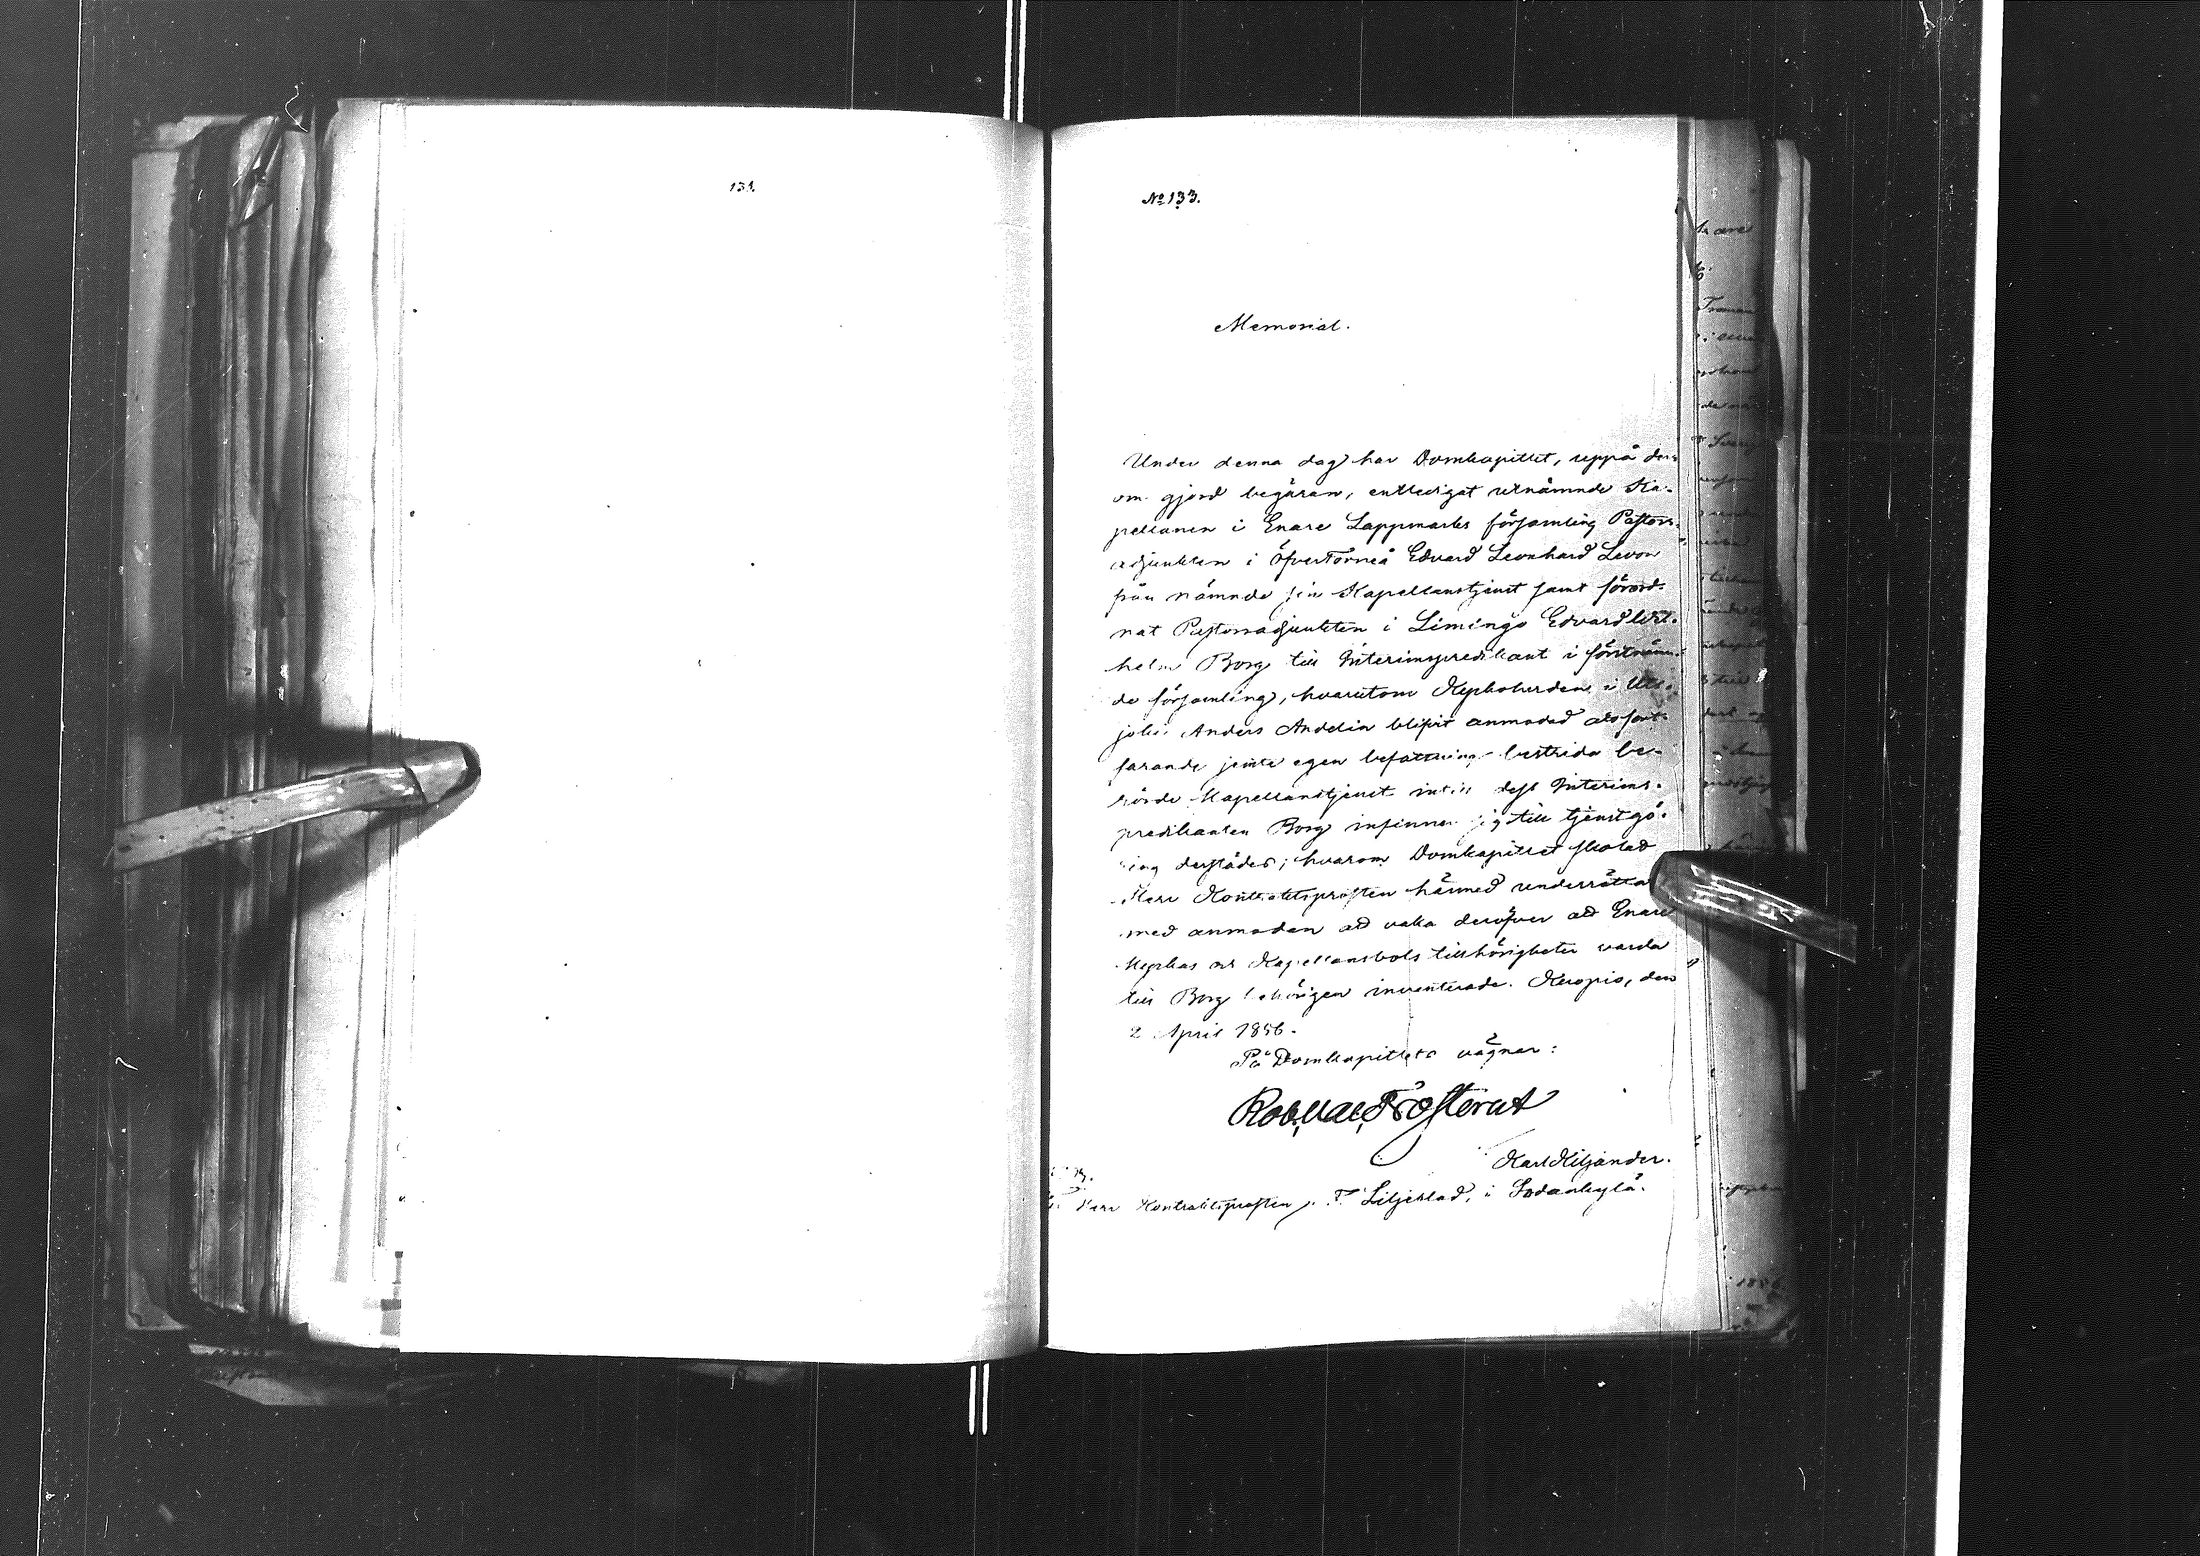 131.
No 133.
Memorial.
Under denna dag har Domkapitlet, uppå der
om gjord begäran, entledigat utnämnde Ka-
pellanen i Enare Lappmarks församling Pastors-
adjunkten i Öfvertorneå Edvard Leonhard Levon
från nämnde sin Kapellanstjenst samt förord-
nat Pastorsadjunkten i Limingo Edvard Wil-
helm Borg till Interimspredikant i förstnämn-
de församling, hvarutom Kyrkoherden i Uts-
joki Anders Andelin blifvit anmodad att fort-
farande jemte egen befattning bestrida be-
rörde Kapellanstjenst intill dess Interims-
predikanten Borg infinner sig till tjenstgö-
ring derstädes; hvarom Domkapitlet skolat
Herr Kontraktsprosten härmed underrätta
med anmodan att vaka deröfver att Enare
Kyrkas och Kapellansbols tillhörigheter varda
till Borg behörigen inventerade. Kuopio, den
2 April 1856.
På Domkapitlets vägnar:
Rob. Val. Frosterus
Karl Kiljander.
Herr Kontraktsprosten J. F. Liljeblad, i Sodankylä.